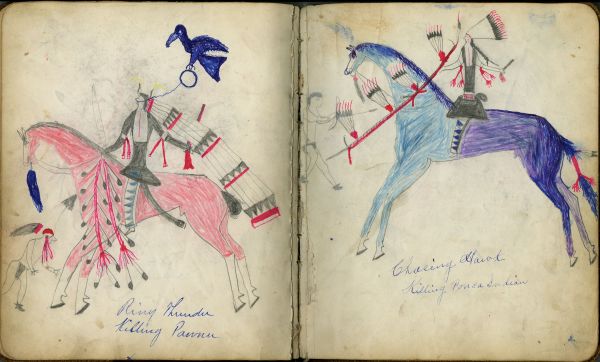 Ring Thunder
Killing Pawnee
Chasing Hawk
Killing Ponca Indian